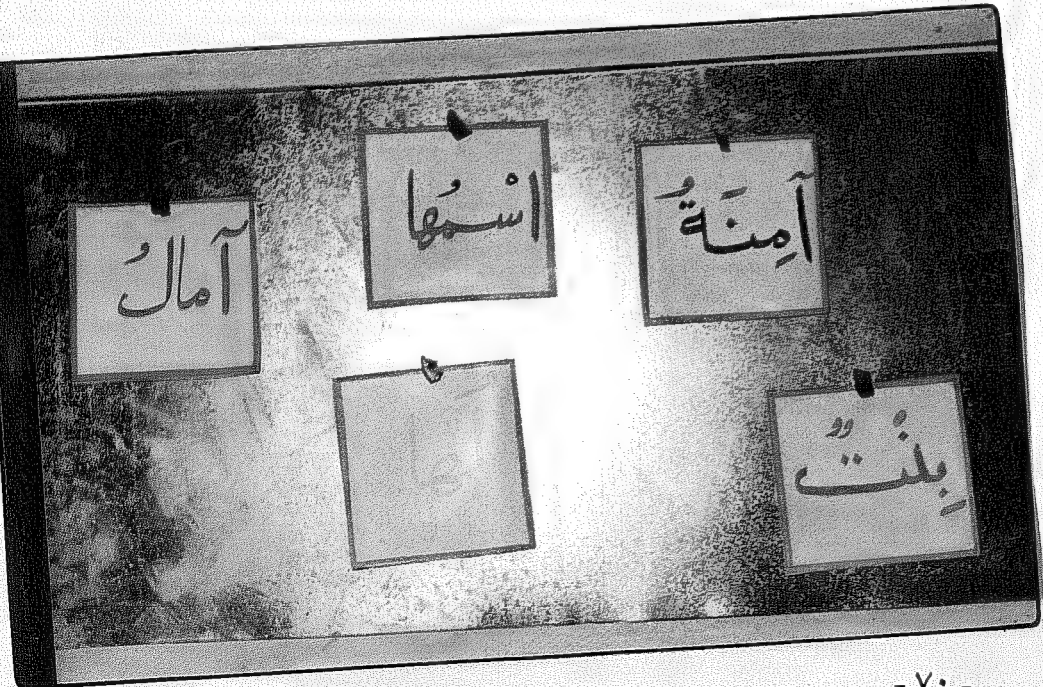 آمِنَةُ
اسْمُها
آمالُ
بِنْتٌ
- ٧٠ -